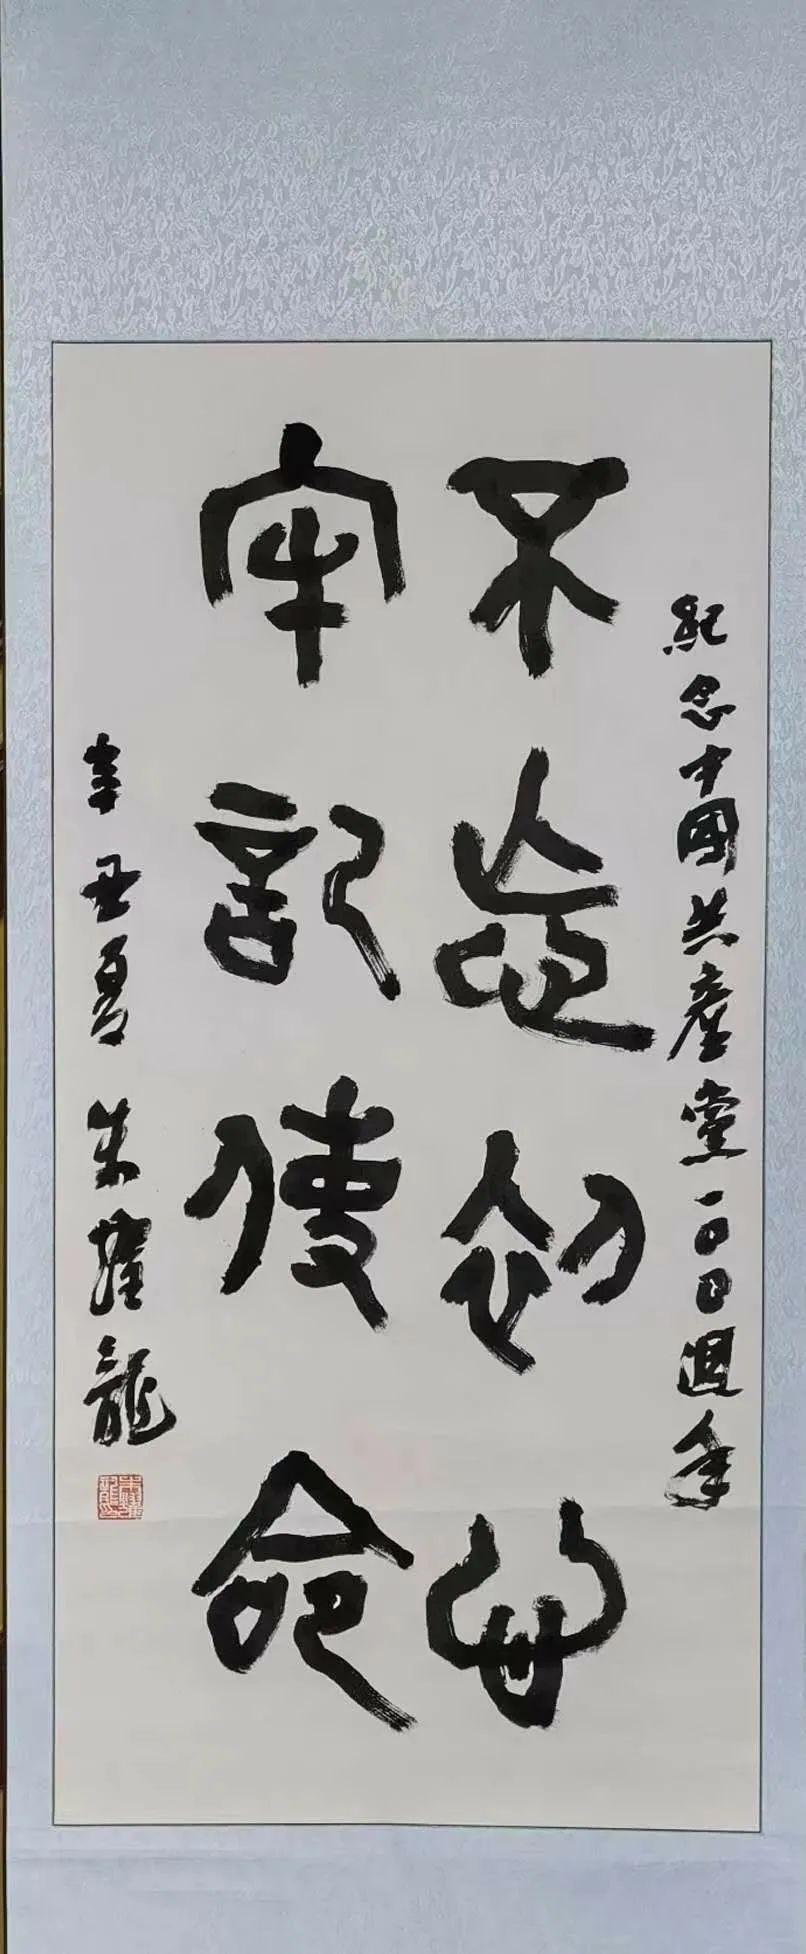 紀念中國共産黨一00週年
不忘初心
牢記使命
辛丑夏 朱耀龍